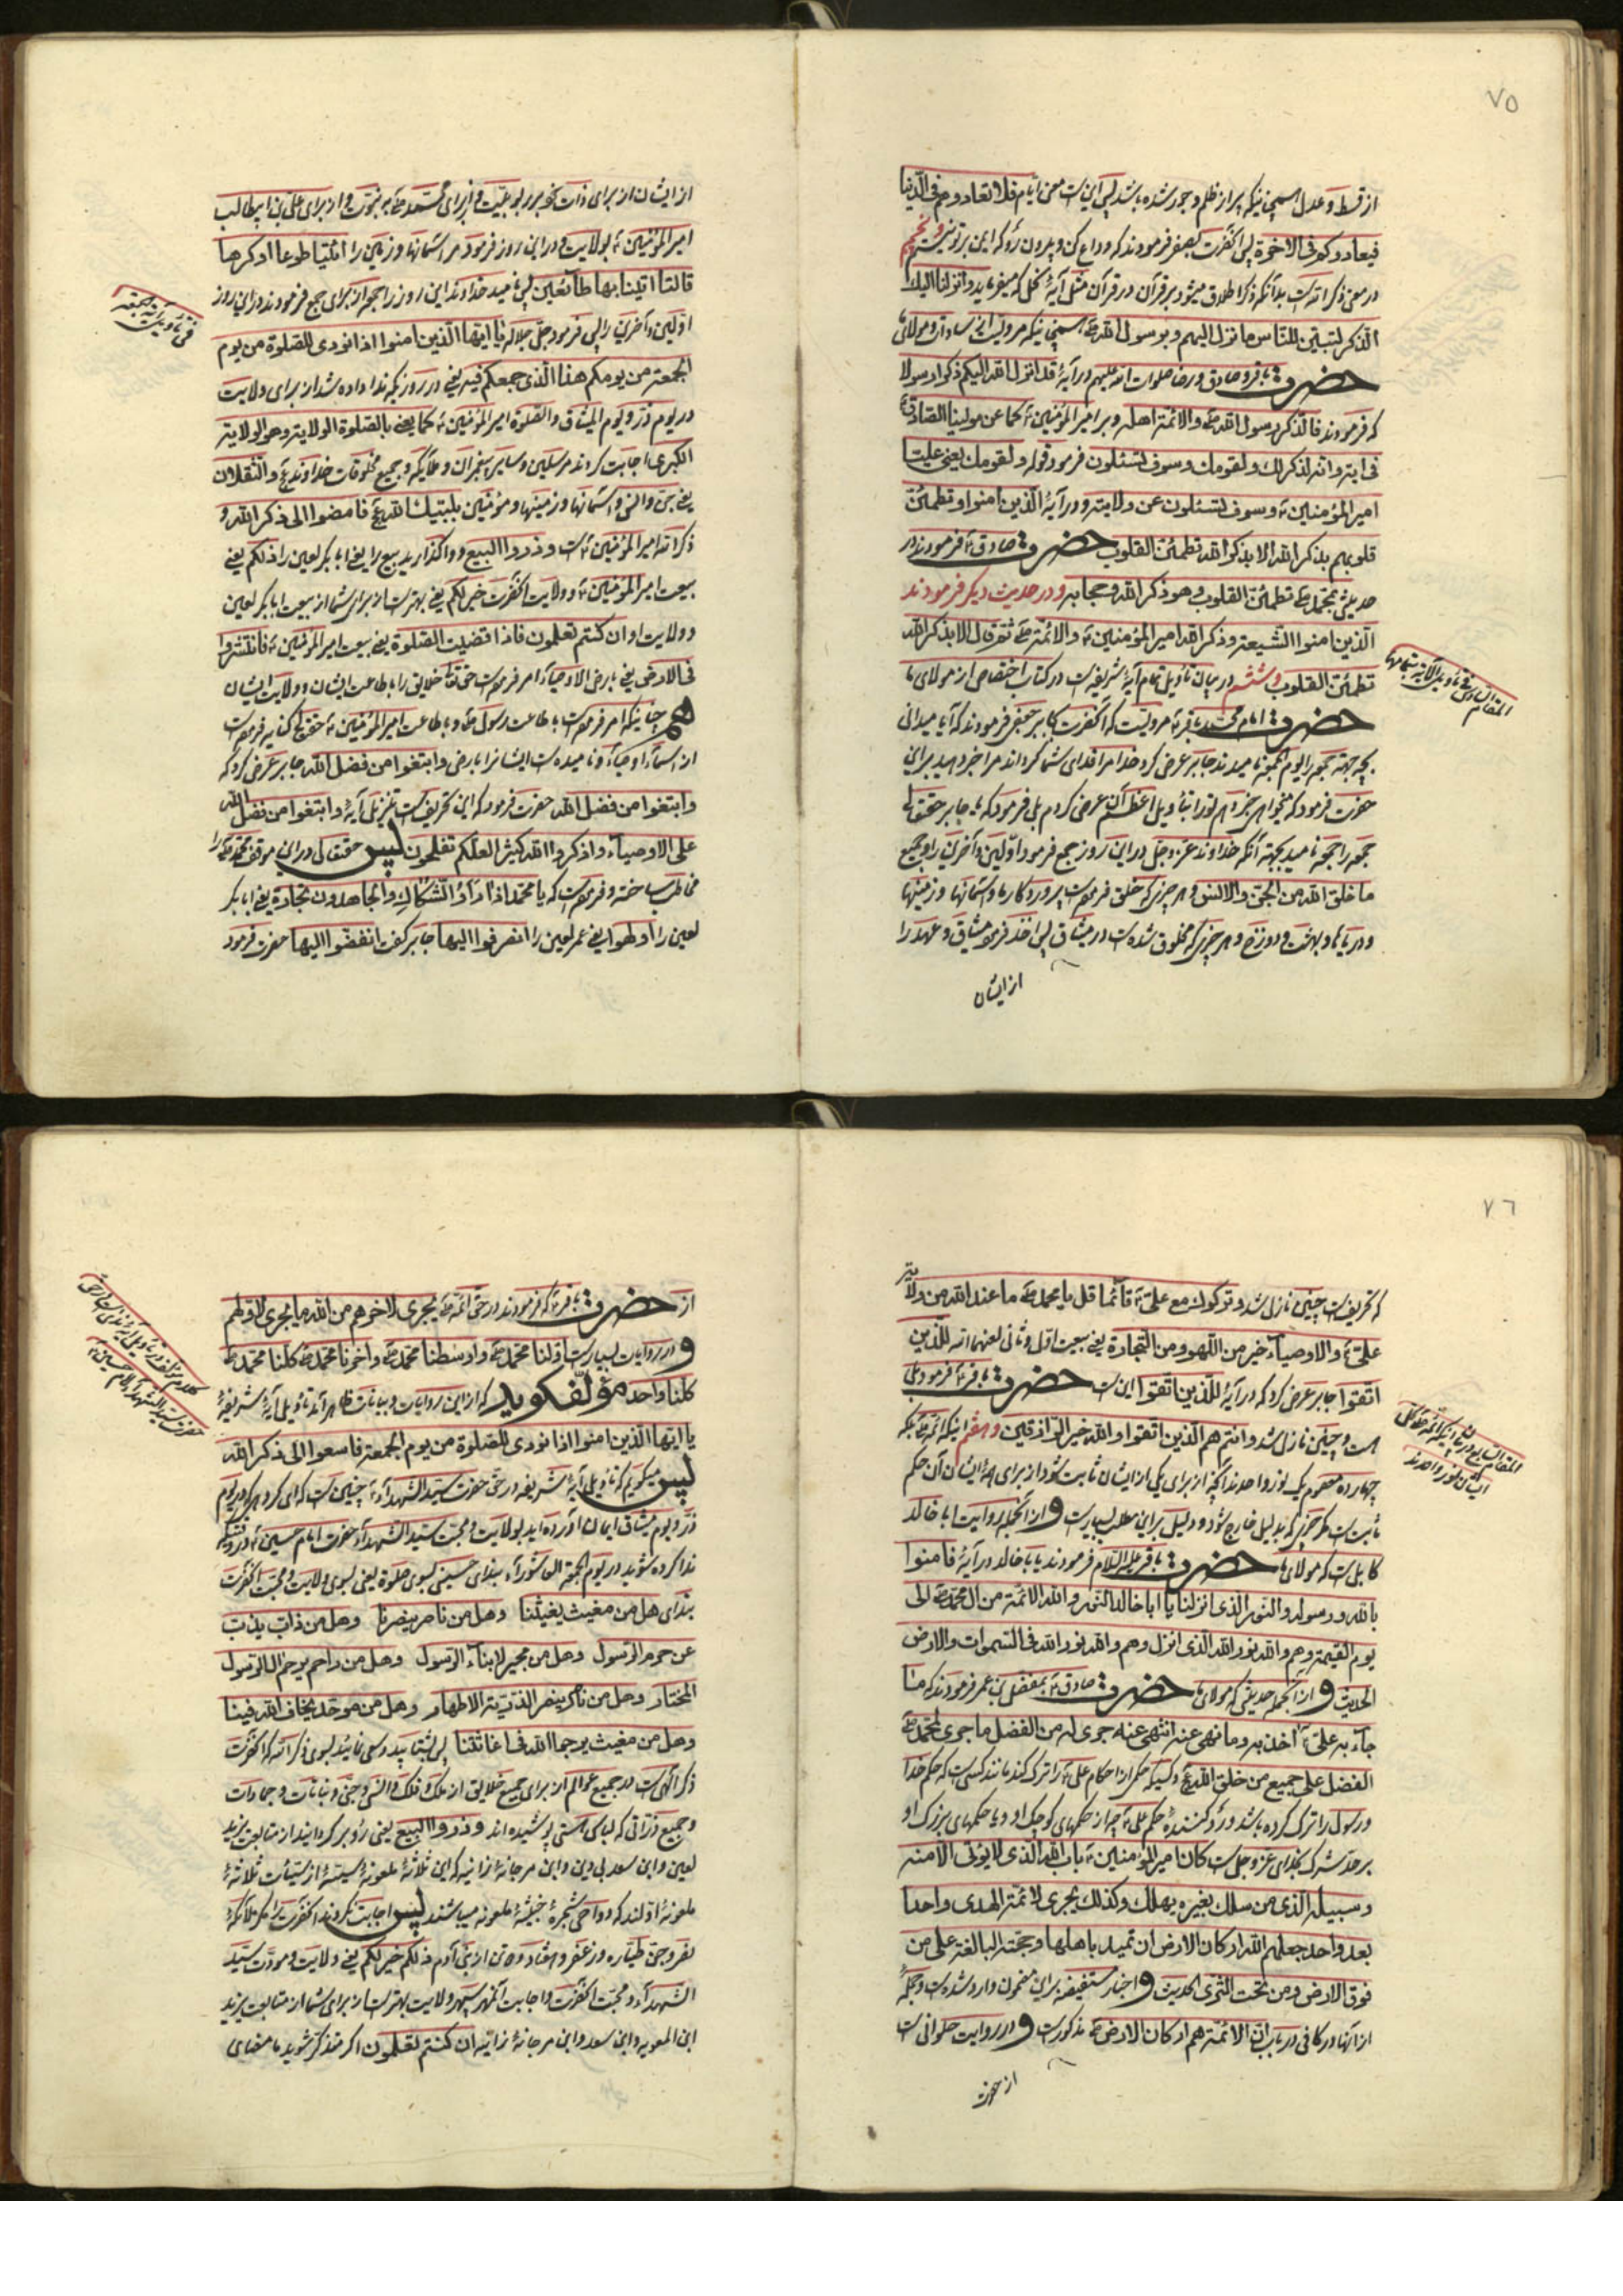 ٧٥
از قسط و عدل همچنینکه پر از ظلم و جور شده باشد پس این است معنی ایّام فلا تعادوهم فی الدّنیا
فیعادوکم فی الاخرة پس آنحضرت بصقر فرمودند که وداع کن و بیرون رو که ایمن بر تو نیستم و پنجم
در معنی ذکر الله است بدانکه ذکر اطلاق میشود بر قرآن در قرآن مثل آیهٔ نحل که میفرماید و انزلنا الیک
الذّکر لتبیّن للنّاس ما نزل الیهم و بر رسول الله ص همچنینکه مرویست از سادات و مولای ما
حضرت باقر و صادق و رضا صلوات الله علیهم در آیهٔ قد انزل الله الیکم ذکرا رسولا
که فرمودند فالذّکر رسول الله ص والائمّة اهله و بر امیر المؤمنین ع کما عن مولینا الصّادق ع
فی آیة وانّه لذکر لک ولقومک وسوف تسئلون فرمود قوله ولقومک یعنی علیّا
امیر المؤمنین ع وسوف تسئلون عن ولایته و در آیهٔ الّذین امنوا وتطمئنّ
قلوبهم بذکر الله الا بذکر الله تطمئنّ القلوب حضرت صادق ع فرمودند در
حدیثی بمحمّد ص تطمئنّ القلوب وهو ذکر الله وحجابه و در حدیث دیگر فرمودند
الّذین امنوا الشّیعة وذکر الله امیر المؤمنین ع والائمّة ص ثمّ قال الا بذکر الله
تطمئنّ القلوب و ششم در بیان تأویل تمام آیهٔ شریفه است در کتاب اختصاص از مولای ما
حضرت امام محمّد باقر ع مرویست که آنحضرت بجابر جعفی فرمودند که آیا میدانی
بچه جهة جمعه را یوم الجمعه نامیدند جابر عرض کرد خدا مرا فدای شما گرداند مرا خبر دهید برای
حضرت فرمود که میخواهی خبر دهم تو را بتأویل اعظم آن عرض کردم بلی فرمود که یا جابر حقتعالی
جمعه را جمعه نامید بجهة آنکه خداوند عزّ و جلّ در این روز جمع فرمود اوّلین و آخرین را و جمیع
ما خلق الله من الجنّ والانس و هر چیزیکه خلق فرموده است پروردگار ما و آسمانها و زمینها
و دریاها و بهشت و دوزخ و هر چیزیکه مخلوق شده است در میثاق پس اخذ فرمود میثاق و عهد را
از ایشان
المقام السّادس فی تأویل الآیة بتمامها
از ایشان از برای ذات خود بربوبیّت و از برای محمّد ص به نبوّت و از برای علی بن ابیطالب
امیر المؤمنین ع بولایت و در این روز فرمود مر آسمانها و زمین را ائتیا طوعا او کرها
قالتا اتینا بها طآئعین پس نامید خداوند این روز را جمعه از برای جمع فرمودند در این روز
اوّلین و آخرین را پس فرمود جلّ جلاله یا ایّها الّذین امنوا اذا نودی للصّلوة من یوم
الجمعة من یومکم هذا الّذی جمعکم فیه یعنی در روزیکه ندا داده شد از برای ولایت
در یوم ذرّ و یوم المیثاق والصّلوة امیر المؤمنین ع کما یعنی بالصّلوة الولایة وهو الولایة
الکبری اجابت کردند مرسلین و سایر پیغمبران و ملائکه و جمیع مخلوقات خداوند ع والثّقلان
یعنی جنّ والانس و آسمانها و زمینها و مؤمنین بلبّیک لله ع فامضوا الی ذکر الله و
ذکر الله امیر المؤمنین ع است وذروا البیع و واگذارید بیع را یعنی ابابکر لعین را ذلکم یعنی
بیعت امیر المؤمنین ع و ولایت آنحضرت خیر لکم یعنی بهتر است از برای شما از بیعت ابابکر لعین
و ولایت او ان کنتم تعلمون فاذا قضیت الصّلوة یعنی بیعت امیر المؤمنین ع فانتشروا
فی الارض یعنی بارض الاوصیآء امر فرموده است حقتعالی خلایق را باطاعت ایشان و ولایت ایشان
همچنانیکه امر فرموده است باطاعت رسول ص و باطاعت امیر المؤمنین ع حقتعالی کنایه فرموده است
از اسمآء اوصیآء و نامیده است ایشانرا بارض وابتغوا من فضل الله جابر عرض کرد که
وابتغوا من فضل الله حضرت فرمود که این تحریف است تنزیل آیهٔ وابتغوا من فضل الله
علی الاوصیآء واذکروا الله کثیرا لعلّکم تفلحون پس حقتعالی در این موقف محمّد ص را
مخاطب ساخته و فرموده است که یا محمّد اذا رأوا الشّکّاک والجاهدون تجارة یعنی ابابکر
لعین را او لهوا یعنی عمر لعین را انصرفوا الیها جابر گفت انفضّوا الیها حضرت فرمود
فی تأویل آیة الجمعة
٧٦
که تحریف است چنین نازل شد وترکوک مع علی ع قآئما قل یا محمد ص ما عند الله من ولایة
علیّ ع والاوصیآء خیر من اللّهو ومن التّجارة یعنی بیعت اوّل و ثانی لعنهما الله للّذین
اتّقوا جابر عرض کرد که در آیهٔ للّذین اتّقوا این است حضرت باقر ع فرمود بلی
هست و چنین نازل شد وانتم هم الّذین اتّقوا والله خیر الرّازقین و هفتم اینکه ائمّه ص بلکه
چهارده معصوم یک نور واحدند آنچه از برای یکی از ایشان ثابت شود از برای همهٔ ایشان آن حکم
ثابت است مگر چیزیکه بدلیل خارج شود و دلیل بر این مطلب بسیار است و از آنجمله روایت ابا خالد
کابلی است که مولای ما حضرت باقر علیه السّلام فرمودند یا ابا خالد در آیهٔ فامنوا
بالله ورسوله والنّور الّذی انزلنا یا ابا خالد النّور والله الائمّة من ال محمّد ص الی
یوم القیمة وهم والله نور الله الّذی انزل وهم والله نور الله فی السّموات والارض
الحدیث و از آنجمله حدیثی که مولای ما حضرت صادق ع بمفضّل بن عمر فرمودند که ما
جآء به علیّ ع اخذ به وما نهی عنه انتهی عنه جری له من الفضل ما جری لمحمّد ص
الفضل علی جمیع من خلق الله ع و کسیکه حکمی از احکام علی ع را ترک کند مانند کسی است که حکم خدا
و رسول را ترک کرده باشد و ردّ کنندهٔ حکم علی ع چه از حکمهای کوچک او و یا حکمهای بزرگ او
بر حدّ شرک بخدای عزّ و جلّ است کان امیر المؤمنین ع باب الله الّذی لا یؤتی الا منه
وسبیله الّذی من سلک بغیره یهلک وکذلک یجری لائمّة الهدی واحدا
بعد واحد جعلهم الله ارکان الارض ان تمید باهلها وحجّته البالغة علی من
فوق الارض ومن تحت الثّری الحدیث و اخبار مستفیضه بر این مضمون وارد شده است و جملهٔ
از آنها در کافی در باب انّ الائمّة هم ارکان الارض ص مذکور است و در روایت حلوانی است
از حضرت
المقام السّابع در بیان اینکه ائمّه ص کلّ ایشان نور واحدند
از حضرت باقر ع که فرمودند در حقّ ائمّه ص یجری لاخرهم من الله ما یجری لاوّلهم
و در روایات بسیار است اوّلنا محمّد ص واوسطنا محمّد ص واخرنا محمّد ص کلّنا محمّد ص
کلّنا واحد مؤلّف گوید که از این روایات و بیانات ظاهر آمد تأویل آیهٔ شریفهٔ
یا ایّها الّذین امنوا اذا نودی للصّلوة من یوم الجمعة فاسعوا الی ذکر الله
پس میگویم که تأویل آیهٔ شریفه در حقّ حضرت سیّد الشّهدآء ع چنین است که ای گروهی که در یوم
ذرّ و یوم میثاق ایمان آورده اید بولایت و محبّت سیّد الشّهدآء حضرت امام حسین ع در وقتیکه
ندا کرده شوید در یوم الجمعة العاشورآء بندای حسینی بسوی صلوة یعنی بسوی ولایت و محبّت آنحضرت
بندای هل من مغیث یغیثنا وهل من ناصر ینصرنا وهل من ذابّ یذبّ
عن حرم الرّسول وهل من مجیر لابناء الرّسول وهل من راحم یرحم ال الرّسول
المختار وهل من ناصر ینصر الذّرّیّة الاطهار وهل من موحّد یخاف الله فینا
وهل من مغیث یرجوا الله فی اغاثتنا پس بشتابید و سعی نمائید بسوی ذکر الله که آنحضرت
ذکر الهی است در جمیع عوالم از برای جمیع خلایق از ملک و فلک و انس و جنّ و نباتات و جمادات
و جمیع ذرّاتی که لباس هستی پوشیده اند وذروا البیع یعنی رو بر گردانید از متابعت یزید
لعین و ابن سعد بی دین و ابن مرجانهٔ زانیه که این ثلاثهٔ ملعونه سیّئهٔ از سیّئات ثلاثهٔ
ملعونهٔ اوّلند که دواحی شجرهٔ خبیثهٔ ملعونه میباشند پس اجابت نکردند آنحضرت را مگر ملائکهٔ
نصر و جنّ طیّاره و زعفر و هفتاد و دو تن از بنی آدم ذلکم خیر لکم یعنی ولایت و مودّت سیّد
الشّهدآء و محبّت آنحضرت و اجابت آنمهر سپهر ولایت بهتر است از برای شما از متابعت یزید
ابن المعویه و ابن سعد و ابن مرجانهٔ زانیه ان کنتم تعلمون اگر متذکّر شوید بامضای
کلام مؤلّف در تأویل آیهٔ
حضرت سیّد الشّهدآء امام حسین ع